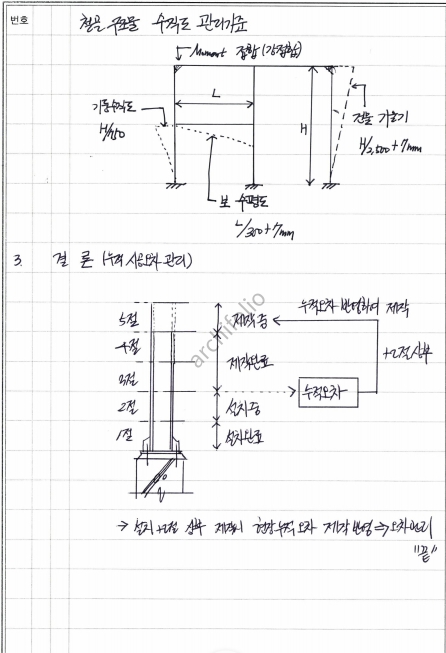 번호
철골 구조물 수직도 관리기준
Moment 접합 (강접합)
L
기둥수직도
H/750
H
건물 기울기
H/2,500 + 7mm
보 수평도
L/300 + 7mm
3. 결 론 (누적 시공오차 관리)
5절
4절
3절
2절
1절
제작 중
제작완료
설치 중
설치완료
누적오차 반영하여 제작
+2절 상부
누적오차
archifolio
→ 설치 +2절 상부 제작시 현장누적오차 제작 반영 ⇒ 오차관리
"끝"